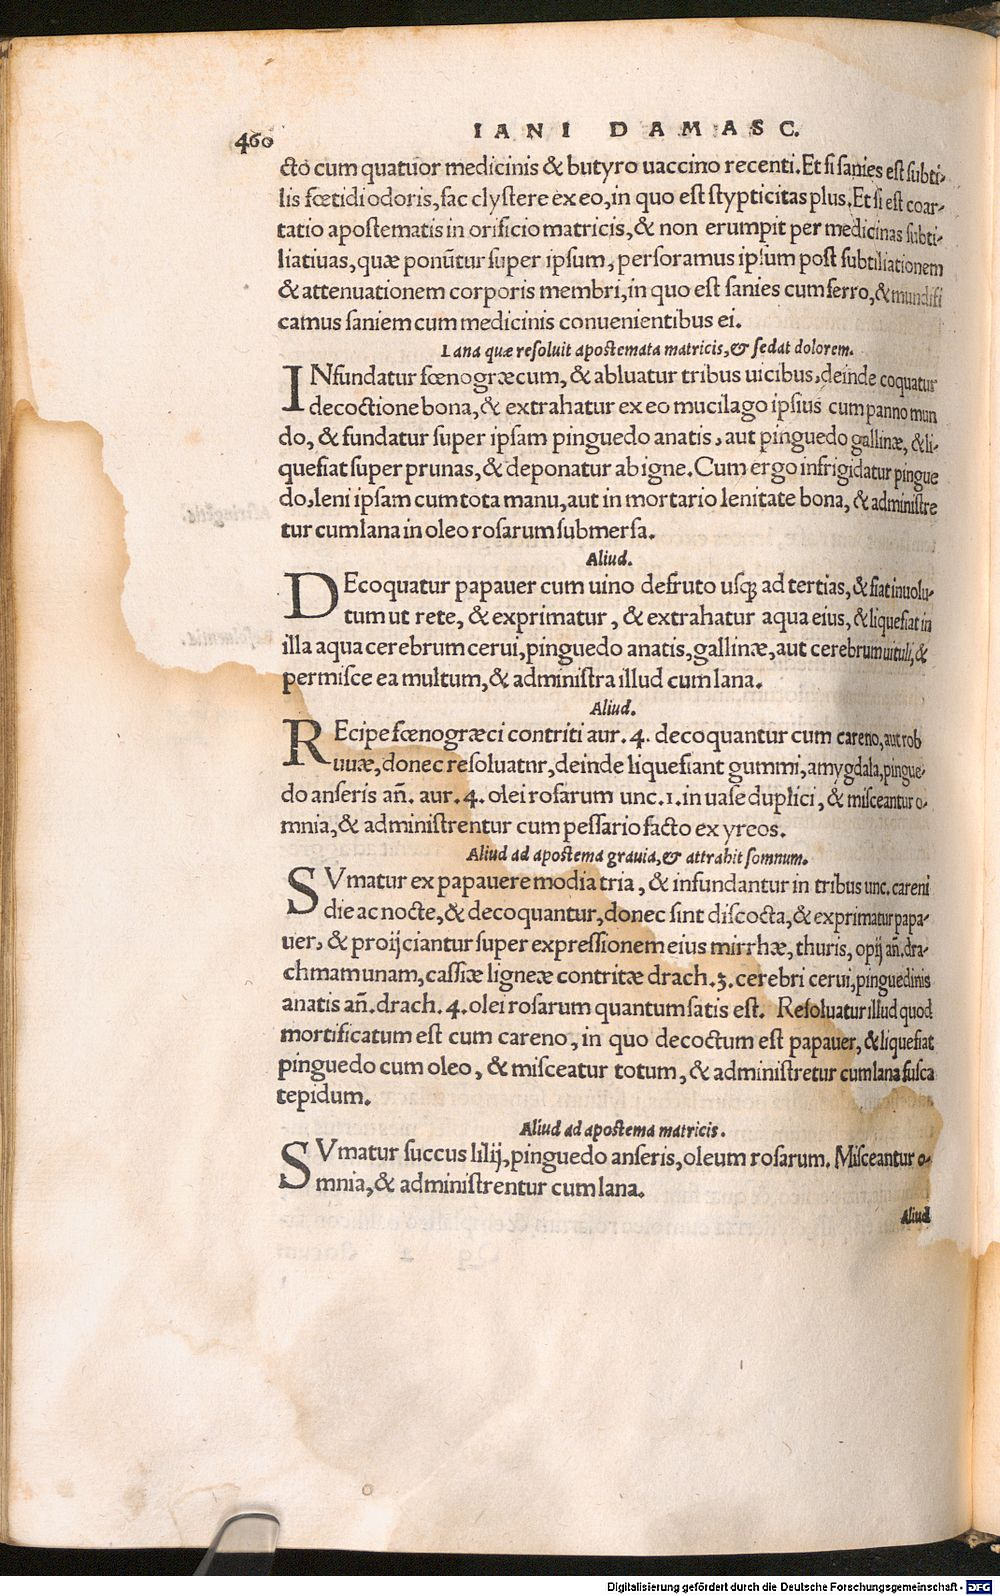 460
IANI DAMASC.
cto cum quatuor medicinis & butyro uaccino recenti. Et si sanies est subti-
lis fœtidi odoris, fac clystere ex eo, in quo est stypticitas plus. Et si est coar-
tatio apostematis in orificio matricis, & non erumpit per medicinas subti-
liatiuas, quæ ponūtur super ipsum, perforamus ipsum post subtiliationem
& attenuationem corporis membri, in quo est sanies cum ferro, & mundifi
camus saniem cum medicinis conuenientibus ei.
Lana quæ resoluit apostemata matricis, & sedat dolorem.
INfundatur fœnogræcum, & abluatur tribus uicibus, deinde coquatur
decoctione bona, & extrahatur ex eo mucilago ipsius cum panno mun
do, & fundatur super ipsam pinguedo anatis, aut pinguedo gallinæ, & li-
quefiat super prunas, & deponatur ab igne. Cum ergo infrigidatur pingue
do, leni ipsam cum tota manu, aut in mortario lenitate bona, & administre
tur cum lana in oleo rosarum submersa.
Aliud.
DEcoquatur papauer cum uino defruto usq; ad tertias, & fiat inuolu-
tum ut rete, & exprimatur, & extrahatur aqua eius, & liquefiat in
illa aqua cerebrum cerui, pinguedo anatis, gallinæ, aut cerebrum uituli, &
permisce ea multum, & administra illud cum lana.
Aliud.
REcipe fœnogræci contriti aur. 4. decoquantur cum careno, aut rob
uuæ, donec resoluatnr, deinde liquefiant gummi, amygdala, pingue-
do anseris añ. aur. 4. olei rosarum unc. 1. in uase duplici, & misceantur o-
mnia, & administrentur cum pessario facto ex yreos.
Aliud ad apostema grauia, & attrahit somnum.
SVmatur ex papauere modia tria, & infundantur in tribus unc. careni
die ac nocte, & decoquantur, donec sint discocta, & exprimatur papa-
uer, & proijciantur super expressionem eius mirrhæ, thuris, opij añ. dra-
chmam unam, cassiæ ligneæ contritæ drach. 3. cerebri cerui, pinguedinis
anatis añ. drach. 4. olei rosarum quantum satis est. Resoluatur illud quod
mortificatum est cum careno, in quo decoctum est papauer, & liquefiat
pinguedo cum oleo, & misceatur totum, & administretur cum lana fusca
tepidum.
Aliud ad apostema matricis.
SVmatur succus lilij, pinguedo anseris, oleum rosarum. Misceantur o-
mnia, & administrentur cum lana.
Aliud
Digitalisierung gefördert durch die Deutsche Forschungsgemeinschaft - DFG